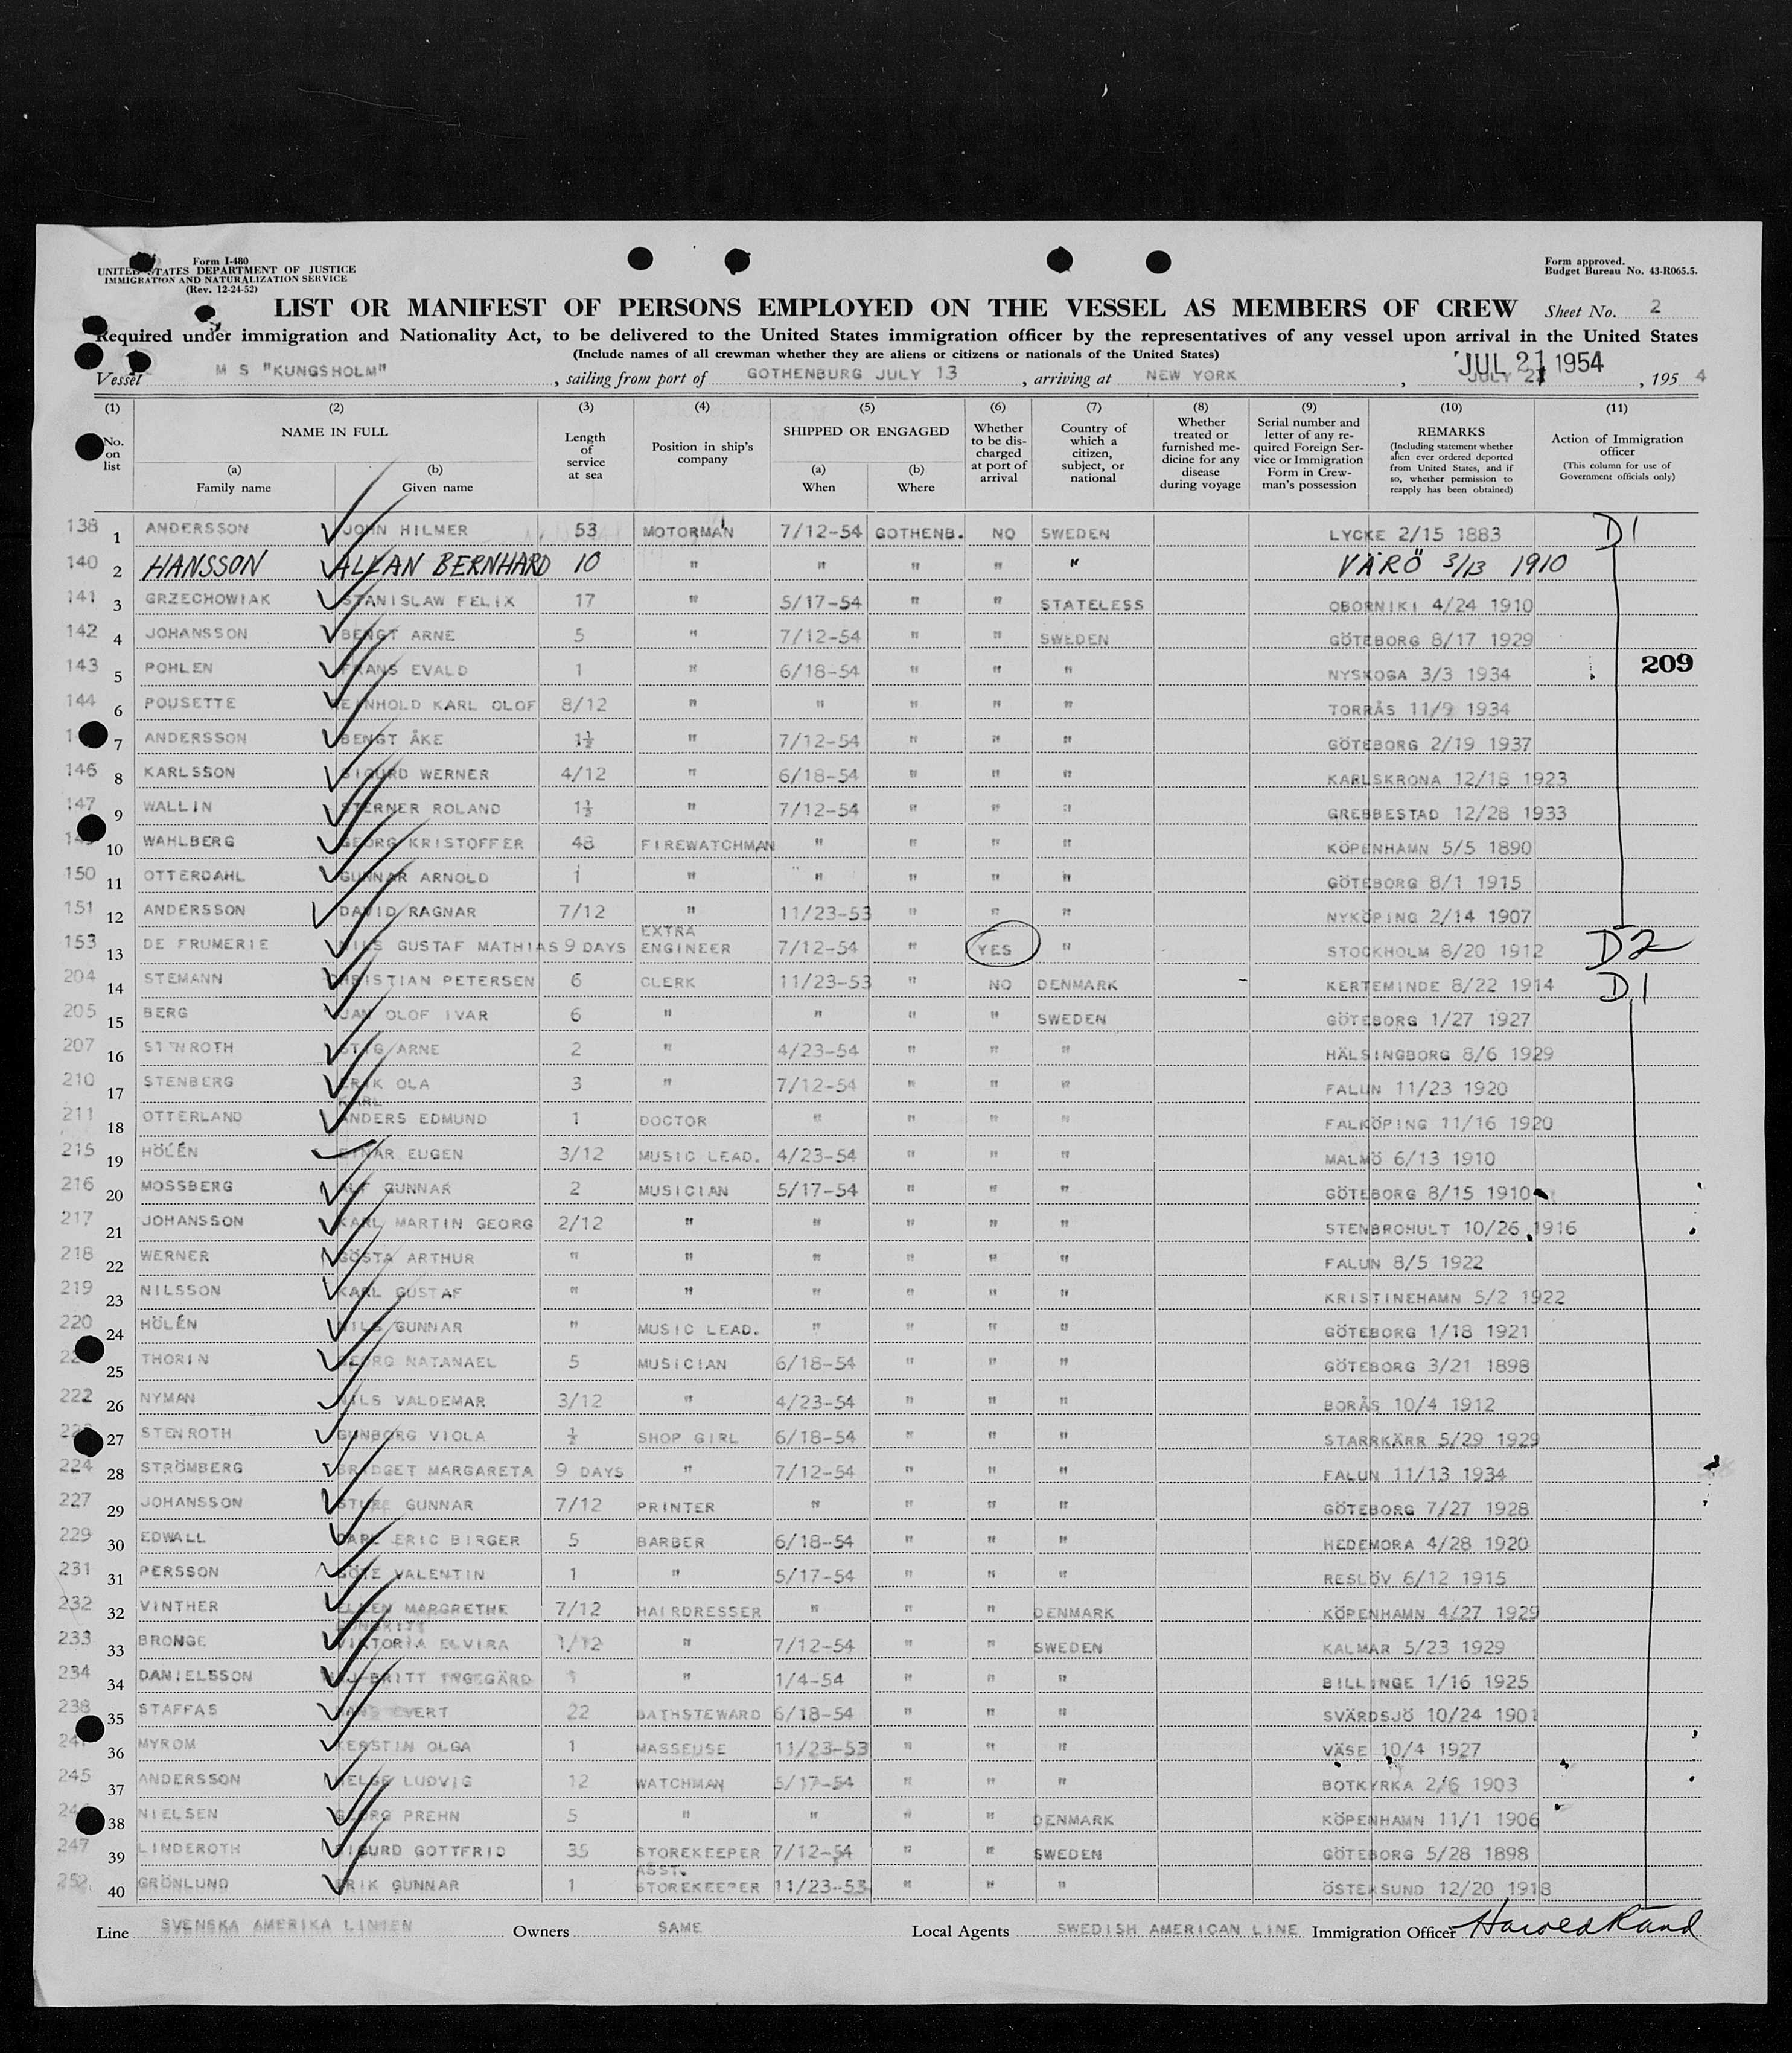 Form I-480
UNITED STATES DEPARTMENT OF JUSTICE
IMMIGRATION AND NATURALIZATION SERVICE
(Rev. 12-24-52)
Form approved.
Budget Bureau No. 43-R065.5.
LIST OR MANIFEST OF PERSONS EMPLOYED ON THE VESSEL AS MEMBERS OF CREW Sheet No. 2
Required under immigration and Nationality Act, to be delivered to the United States immigration officer by the representatives of any vessel upon arrival in the United States
(Include names of all crewman whether they are aliens or citizens or nationals of the United States)
JUL 21 1954
Vessel M S "KUNGSHOLM", sailing from port of GOTHENBURG JULY 13, arriving at NEW YORK, JULY 21, 1954
(1) (2) (3) (4) (5) (6) (7) (8) (9) (10) (11)
No. on list
NAME IN FULL
(a) Family name
(b) Given name
Length of service at sea
Position in ship's company
SHIPPED OR ENGAGED
(a) When
(b) Where
Whether to be discharged at port of arrival
Country of which a citizen, subject, or national
Whether treated or furnished medicine for any disease during voyage
Serial number and letter of any required Foreign Service or Immigration Form in Crewman's possession
REMARKS
(Including statement whether alien ever ordered deported from United States, and if so, whether permission to reapply has been obtained)
Action of Immigration officer
(This column for use of Government officials only)
138 1 ANDERSSON JOHN HILMER 53 MOTORMAN 7/12-54 GOTHENB. NO SWEDEN LYCKE 2/15 1883 D1
140 2 HANSSON ALLAN BERNHARD 10 " " " " " VÄRÖ 3/13 1910
141 3 GRZECHOWIAK STANISLAW FELIX 17 " 5/17-54 " " STATELESS OBORNIKI 4/24 1910
142 4 JOHANSSON BENGT ARNE 5 " 7/12-54 " " SWEDEN GÖTEBORG 8/17 1929
143 5 POHLEN FRANS EVALD 1 " 6/18-54 " " " NYSKOGA 3/3 1934
209
144 6 POUSETTE REINHOLD KARL OLOF 8/12 " " " " " TORRÅS 11/9 1934
7 ANDERSSON BENGT ÅKE 1½ " 7/12-54 " " " GÖTEBORG 2/19 1937
146 8 KARLSSON SIGURD WERNER 4/12 " 6/18-54 " " " KARLSKRONA 12/18 1923
147 9 WALLIN STERNER ROLAND 1½ " 7/12-54 " " " GREBBESTAD 12/28 1933
149 10 WAHLBERG GEORG KRISTOFFER 48 FIREWATCHMAN " " " " KÖPENHAMN 5/5 1890
150 11 OTTERDAHL GUNNAR ARNOLD 1 " " " " " GÖTEBORG 8/1 1915
151 12 ANDERSSON DAVID RAGNAR 7/12 " 11/23-53 " " " NYKÖPING 2/14 1907
153 13 DE FRUMERIE NILS GUSTAF MATHIAS 9 DAYS EXTRA ENGINEER 7/12-54 " YES " STOCKHOLM 8/20 1912 D2
204 14 STEMANN CHRISTIAN PETERSEN 6 CLERK 11/23-53 " NO DENMARK - KERTEMINDE 8/22 1914 D1
205 15 BERG JAN OLOF IVAR 6 " " " " SWEDEN GÖTEBORG 1/27 1927
207 16 STENROTH STIG ARNE 2 " 4/23-54 " " " HÄLSINGBORG 8/6 1929
210 17 STENBERG ERIK OLA 3 " 7/12-54 " " " FALUN 11/23 1920
211 18 OTTERLAND KARL ANDERS EDMUND 1 DOCTOR " " " " FALKÖPING 11/16 1920
215 19 HOLÉN EINAR EUGEN 3/12 MUSIC LEAD. 4/23-54 " " " MALMÖ 6/13 1910
216 20 MOSSBERG ALF GUNNAR 2 MUSICIAN 5/17-54 " " " GÖTEBORG 8/15 1910
217 21 JOHANSSON KARL MARTIN GEORG 2/12 " " " " " STENBROHULT 10/26 1916
218 22 WERNER GÖSTA ARTHUR " " " " " " FALUN 8/5 1922
219 23 NILSSON KARL GUSTAF " " " " " " KRISTINEHAMN 5/2 1922
220 24 HOLÉN NILS GUNNAR " MUSIC LEAD. " " " " GÖTEBORG 1/18 1921
25 THORIN GEORG NATANAEL 5 MUSICIAN 6/18-54 " " " GÖTEBORG 3/21 1898
222 26 NYMAN NILS VALDEMAR 3/12 " 4/23-54 " " " BORÅS 10/4 1912
27 STENROTH GUNBORG VIOLA ½ SHOP GIRL 6/18-54 " " " STARRKÄRR 5/29 1929
224 28 STRÖMBERG BRIDGET MARGARETA 9 DAYS " 7/12-54 " " " FALUN 11/13 1934
227 29 JOHANSSON STURE GUNNAR 7/12 PRINTER " " " " GÖTEBORG 7/27 1928
229 30 EDWALL CARL ERIC BIRGER 5 BARBER 6/18-54 " " " HEDEMORA 4/28 1920
231 31 PERSSON GÖTE VALENTIN 1 " 5/17-54 " " " RESLÖV 6/12 1915
232 32 VINTHER ELLEN MARGRETHE 7/12 HAIRDRESSER " " " DENMARK KÖPENHAMN 4/27 1929
233 33 BRONGE VIKTORIA ELVIRA 1/12 " 7/12-54 " " SWEDEN KALMAR 5/23 1929
234 34 DANIELSSON MAJ-BRITT INGEGÄRD " 1/4-54 " " " BILLINGE 1/16 1925
238 35 STAFFAS EVERT 22 BATHSTEWARD 6/18-54 " " " SVÄRDSJÖ 10/24 1901
36 MYROM KERSTIN OLGA 1 MASSEUSE 11/23-53 " " " VÄSE 10/4 1927
245 37 ANDERSSON HELGE LUDVIG 12 WATCHMAN 5/17-54 " " " BOTKYRKA 2/6 1903
38 NIELSEN GEORG PREHN 5 " " " " DENMARK KÖPENHAMN 11/1 1906
247 39 LINDEROTH SIGURD GOTTFRID 35 STOREKEEPER 7/12-54 " " SWEDEN GÖTEBORG 5/28 1898
252 40 GRÖNLUND ERIK GUNNAR 1 ASST. STOREKEEPER 11/23-53 " " " ÖSTERSUND 12/20 1918
Line SVENSKA AMERIKA LINIEN Owners SAME Local Agents SWEDISH AMERICAN LINE Immigration Officer Harold Rand